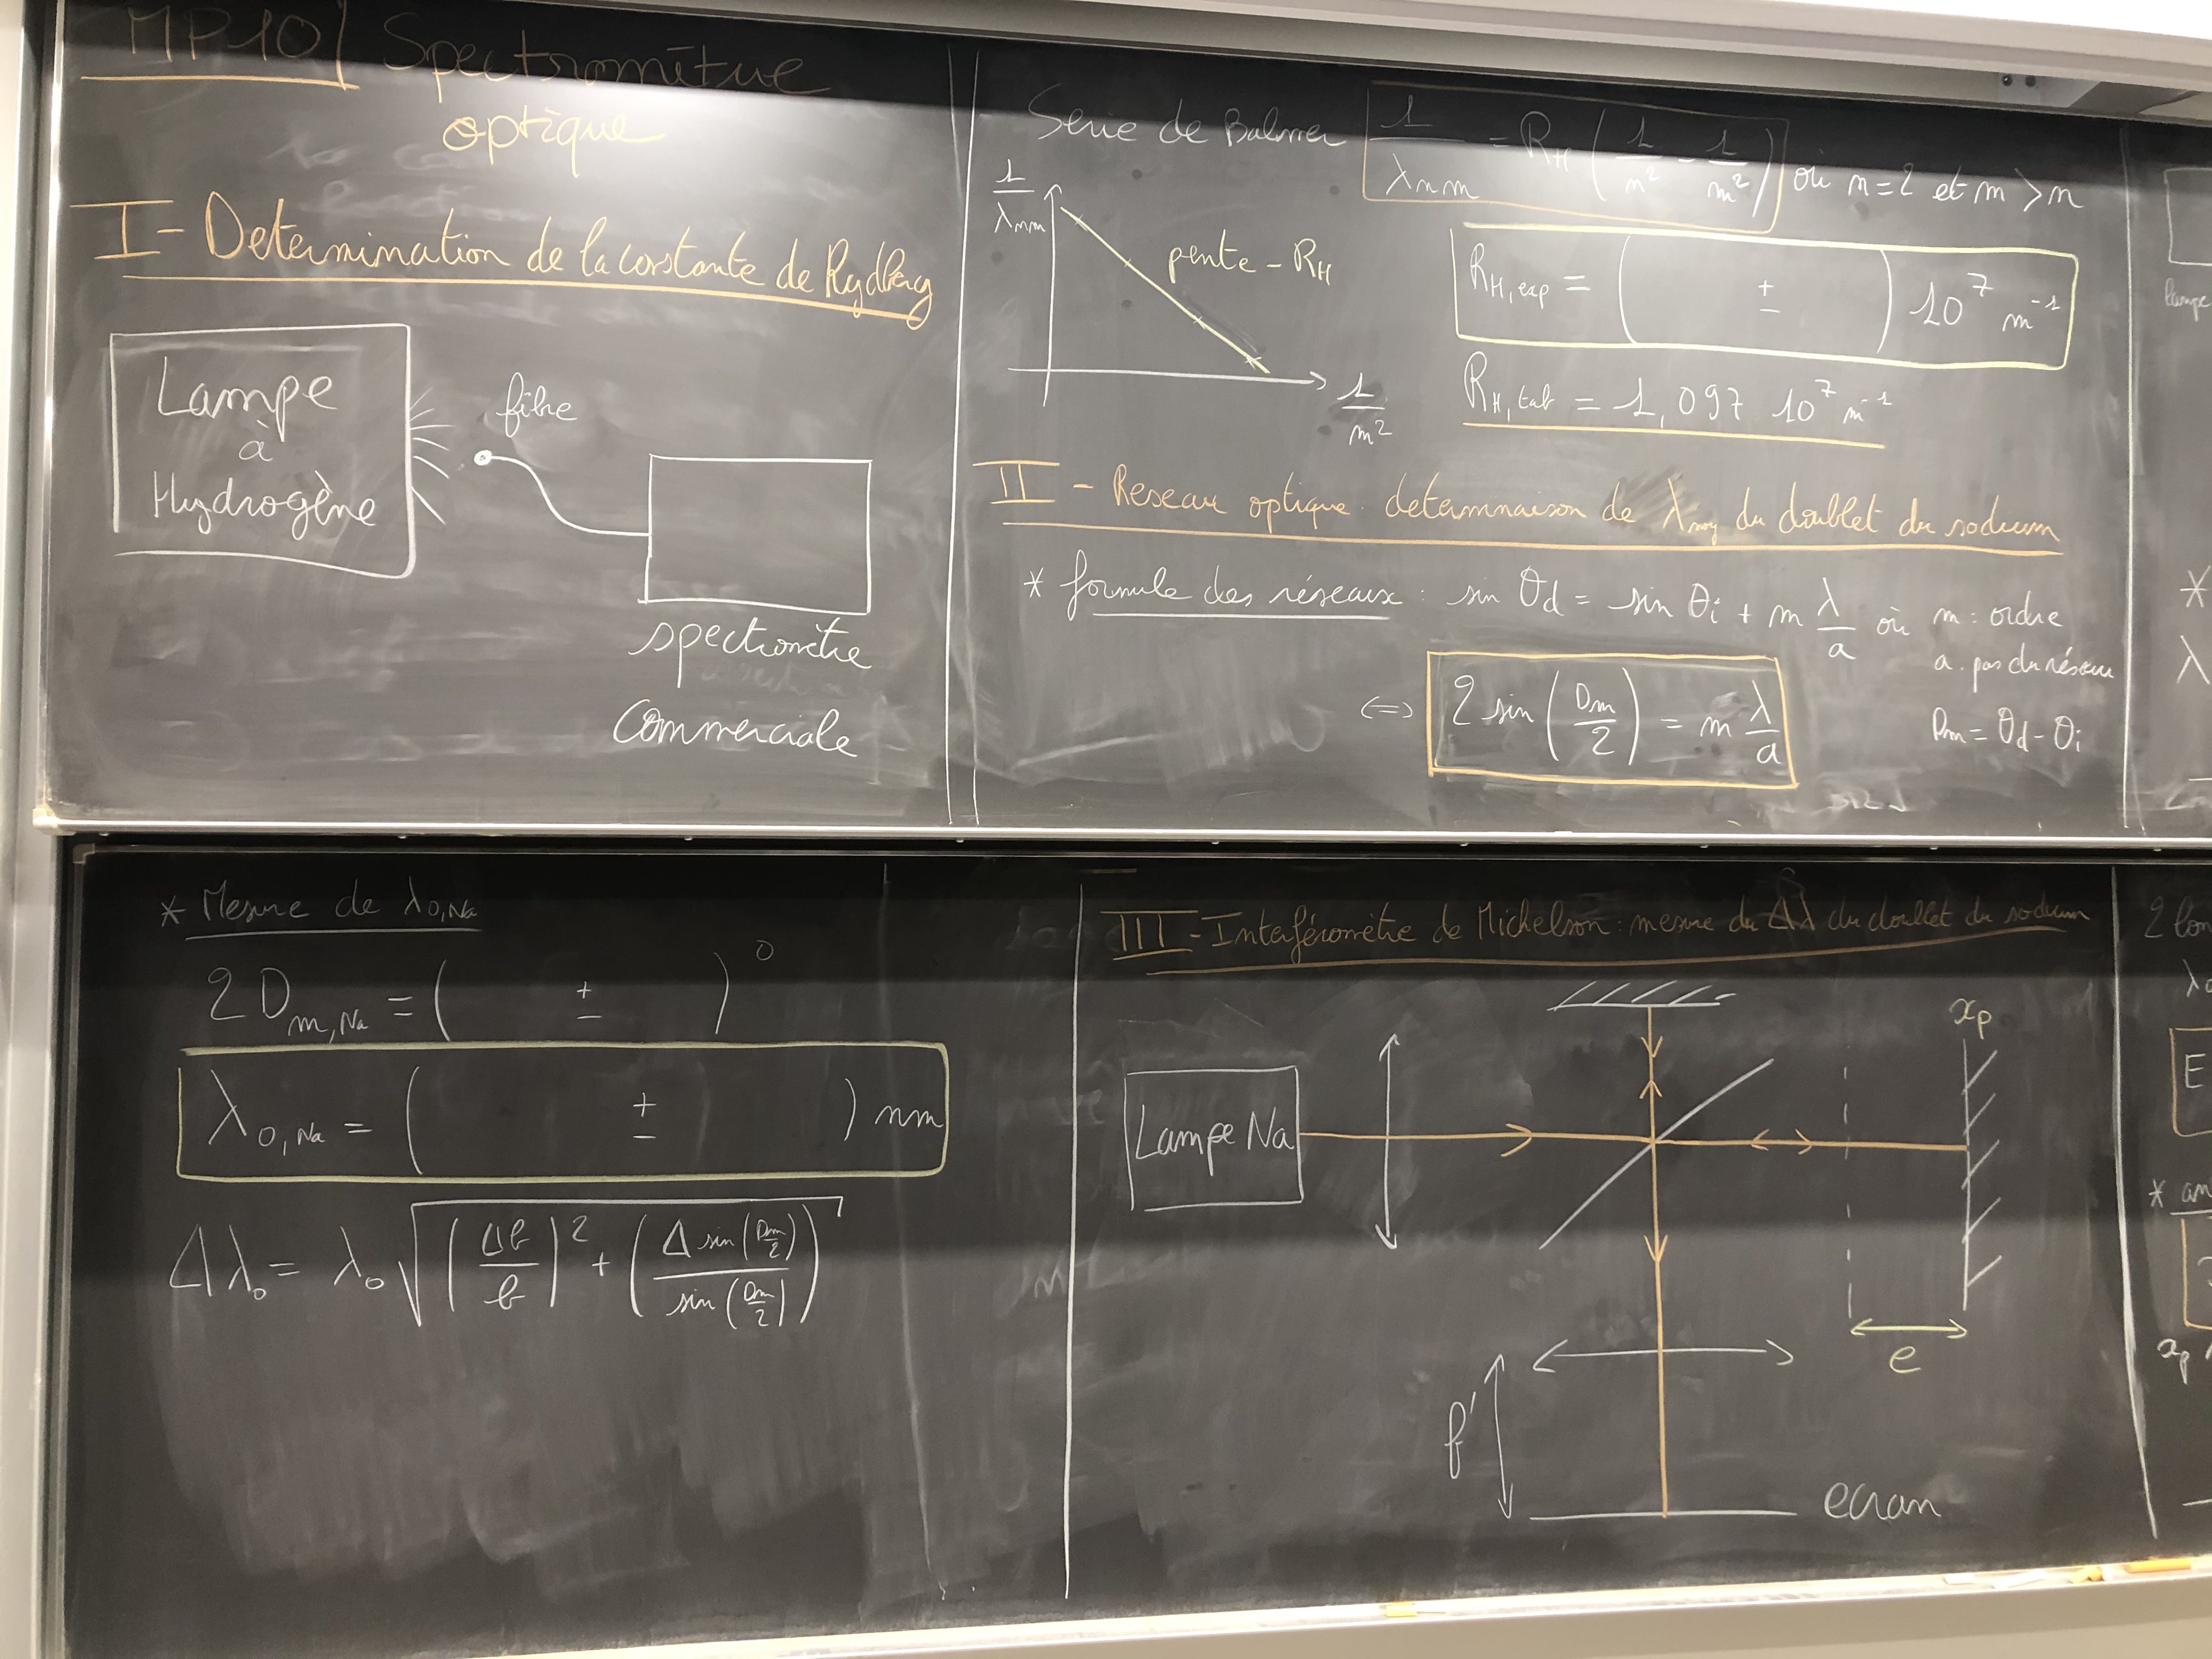 MP10 | Spectrométrie
optique
I - Determination de la constante de Rydberg
Lampe
à
Hydrogène
fibre
spectromètre
Commerciale
Serie de Balmer 1/λnm = RH (1/n² - 1/m²) où n=2 et m > n
1/λnm
pente - RH
1/m²
RH,exp = ( ± ) 10⁷ m⁻¹
RH,tab = 1,097 10⁷ m⁻¹
II - Reseau optique : determinaison de λmoy du doublet du sodium
* formule des réseaux : sin θd = sin θi + m λ/a où m : ordre
a : pas du réseau
⇔ 2 sin(Dm/2) = m λ/a
Dm = θd - θi
lampe
*
λ
* Mesure de λ0,Na
2 Dm,Na = ( ± )°
λ0,Na = ( ± ) nm
Δλ0 = λ0 √((Δb/b)² + (Δ sin(Dm/2) / sin(Dm/2))²)
III - Interféromètre de Michelson : mesure du Δλ du doublet du sodium
Lampe Na
xp
e
f'
ecran
2
λ0
E
*
xp